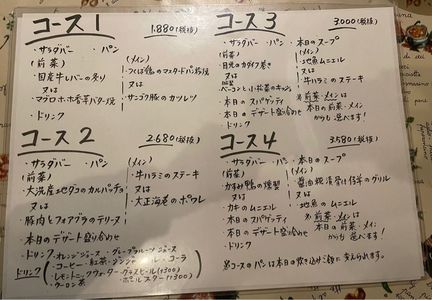 コース1 1,880(税抜)
・サラダバー ・パン
(前菜)
・国産牛レバーの炙り
又は
・マグロホホ香草バター焼
・ドリンク
(メイン)
・つくば鶏のマスタードパン粉焼
又は
・サンゴク豚のカツレツ
コース2 2,680(税抜)
・サラダバー ・パン
(前菜)
・大洗産地ダコのカルパッチョ
又は
・豚肉とフォアグラのテリーヌ
・本日のデザート盛り合わせ
(メイン)
・牛ハラミのステーキ
又は
・大正海老のポワレ
・ドリンク
ドリンク
オレンジジュース・グレープフルーツジュース
・コーヒー・紅茶・ジンジャーエール・コーラ
・レモントニックウォーター・グラスビール(+300)
・ウーロン茶
コース3 3,000(税抜)
・サラダバー ・パン ・本日のスープ
(前菜)
又は
・ベーコンと小松菜のキッシュ
・本日のスパゲッティ
・本日のデザート盛り合わせ
・ドリンク
(メイン)
・地魚ムニエル
又は
・牛ハラミのステーキ
※前菜・メイン
本日の前菜・メイン
からも選べます!
コース4 3,580(税抜)
・サラダバー ・パン ・本日のスープ
(前菜)
・かすみ鴨の燻製
又は
・カキのムニエル
・本日のスパゲッティ
・本日のデザート盛り合わせ
・ドリンク
(メイン)
・醤油糀漬け仔羊のグリル
又は
・地魚のムニエル
※前菜・メイン
本日の前菜・メイン
からも選べます!
※コースのパンは本日の炊き込みご飯に変えられます。